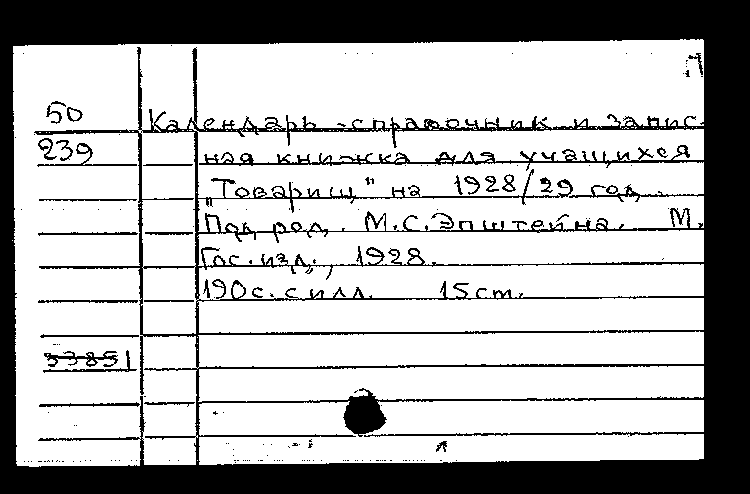 П
50 Календарь-справочник и запис-
239 ная книжка для учащихся
„Товарищ" на 1928/29 год.
Под ред. М.С.Эпштейна. М.
Гос. изд., 1928.
190с. с илл. 15cm.
53851